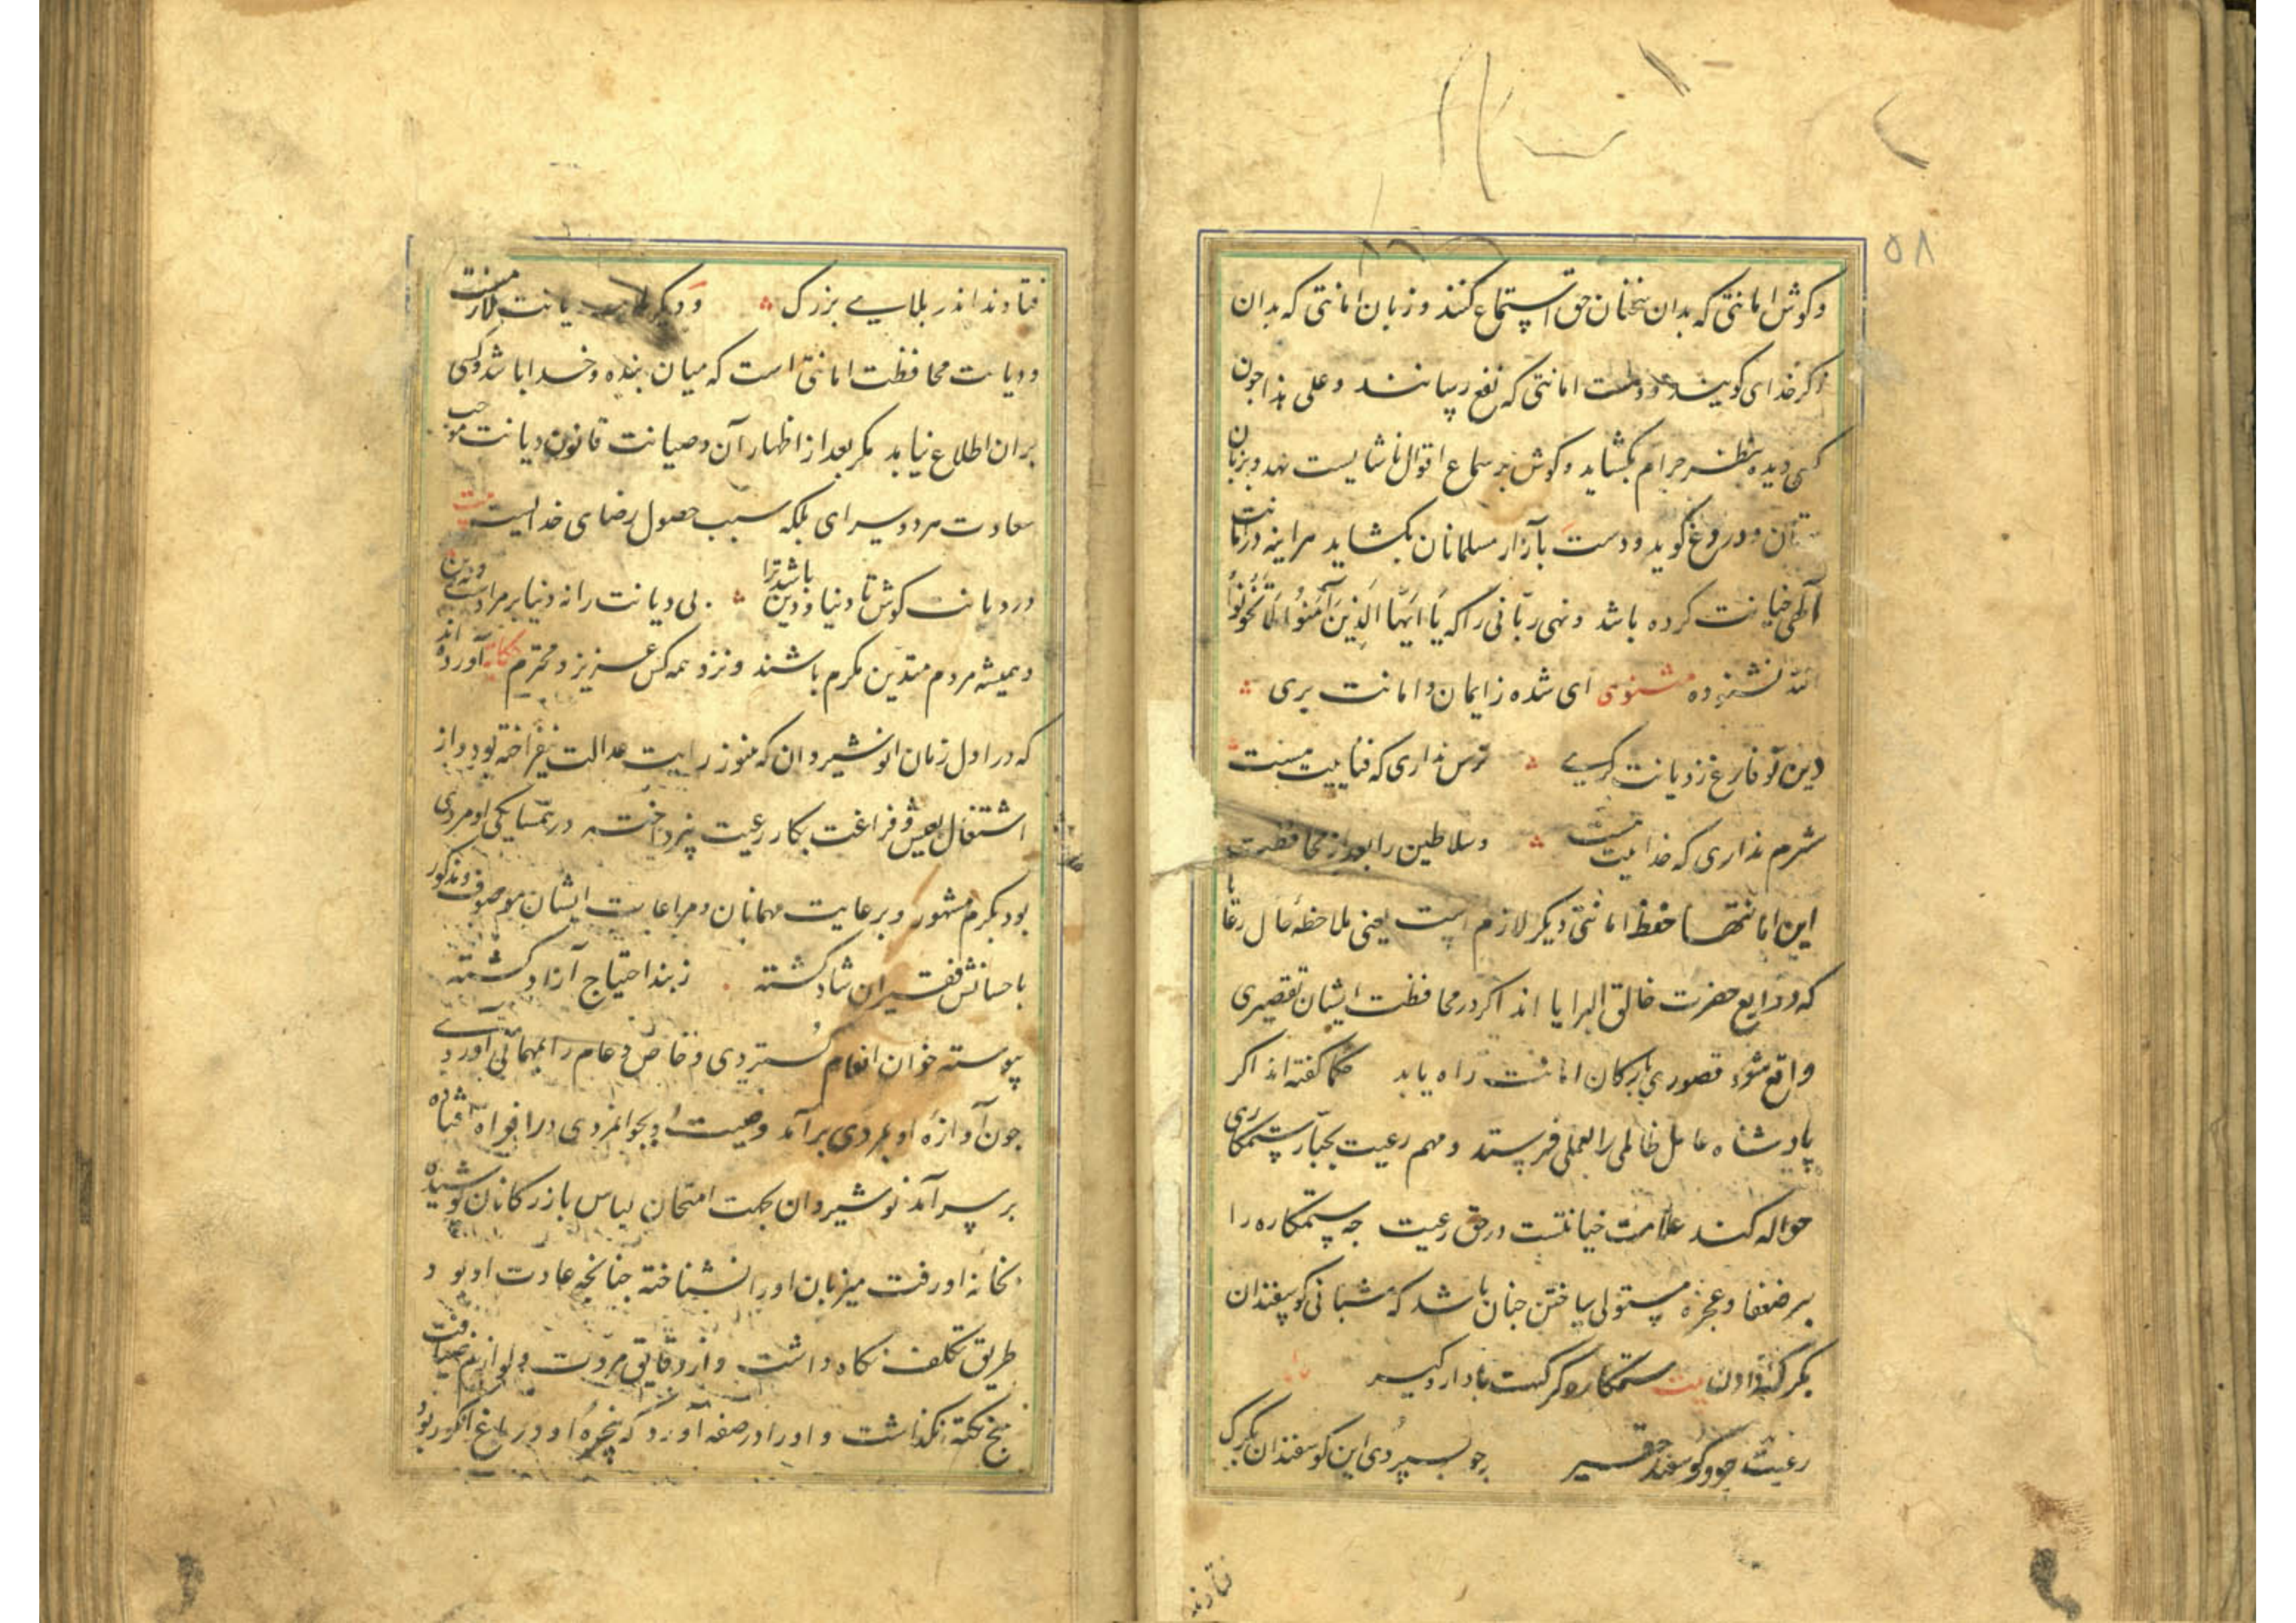 ۵۸
وکوش امانتی که بدان سخنان حق استماع کنند و زبان امانتی که بدان
ذکر خدای کویند و دست امانتی که نفع رسانند و علی هذا جون
کسی دیده بنظر حرام بکشاید و کوش بر سماع اقوال ناشایست نهد و بزبان
بهتان و دروغ کوید و دست بآزار مسلمانان بکشاید هراینه در امانت
الهی خیانت کرده باشد و نهی ربّانی را که یَا اَیُّهَا الَّذِینَ آمَنُوا لَا تَخُونُوا
الله نشنوده مثنوی ای شده ز ایمان و امانت بری
دین تو فارغ ز دیانت کری ترس نداری که فناییت هست
شرم نداری که خداییت هست و سلاطین را بعد از محافظت
این امانتها حفظ امانتی دیکر لازم است یعنی ملاحظهٔ حال رعایا
که ودایع حضرت خالق البرایا اند اکر در محافظت ایشان تقصیری
واقع شود قصوری بارکان امانت راه یابد حکما کفته اند اکر
پادشاه عامل ظالمی را بعملی فرستد و مهم رعیت بجبّار ستمکاری
حواله کند علامت خیانتست در حق رعیت جه ستمکاره را
بر ضعفا و عجزه مستولی ساختن جنان باشد که شبانی کوسفندان
بکرک دادن بیت ستمکاره کرکست با دار و کیر
رعیت جو کوسفند حقیر جو بسپردی این کوسفندان بکرک
فتادند
فتادند اندر بلایی بزرک و دیکر دیانت لازمست
و دیانت محافظت امانتی است که میان بنده و خدا باشد و کسی
بران اطلاع نیابد مکر بعد از اظهار آن و صیانت قانون دیانت موجب
سعادت هر دو سرای بلکه سبب حصول رضای خدایست بیت
در دیانت کوش تا دنیا و دین باشد ترا بی دیانت را نه دنیا بر مرادست و نه دین
و همیشه مردم متدیّن مکرم باشند و نزد همه کس عزیز و محترم حکایة آورده اند
که در اول زمان انوشیروان که هنوز رایت عدالت نیفراخته بود و از
اشتغال بعیش و فراغت بکار رعیت نپرداخته در همسایکی او مردی
بود بکرم مشهور و برعایت مهمانان و مراعات ایشان موصوف و مذکور
باحسانش فقیران شاد کشته ز بند احتیاج آزاد کشته
پیوسته خوان انعام کستردی و خاص و عام را بمهمانی آوردی
جون آوازهٔ او بمردی برآمد و صیت او بجوانمردی در افواه افتاده
بر سر آمد نوشیروان بجهت امتحان لباس بازرکانان پوشیده
بخانهٔ او رفت میزبان او را نشناخته جنانجه عادت او بود
طریق تکلف نکاه داشت و از دقایق مروت و لوازم ضیافت
هیچ نکته نکذاشت و او را در صفه آورد که پنجرهٔ او در باغ انکور بود